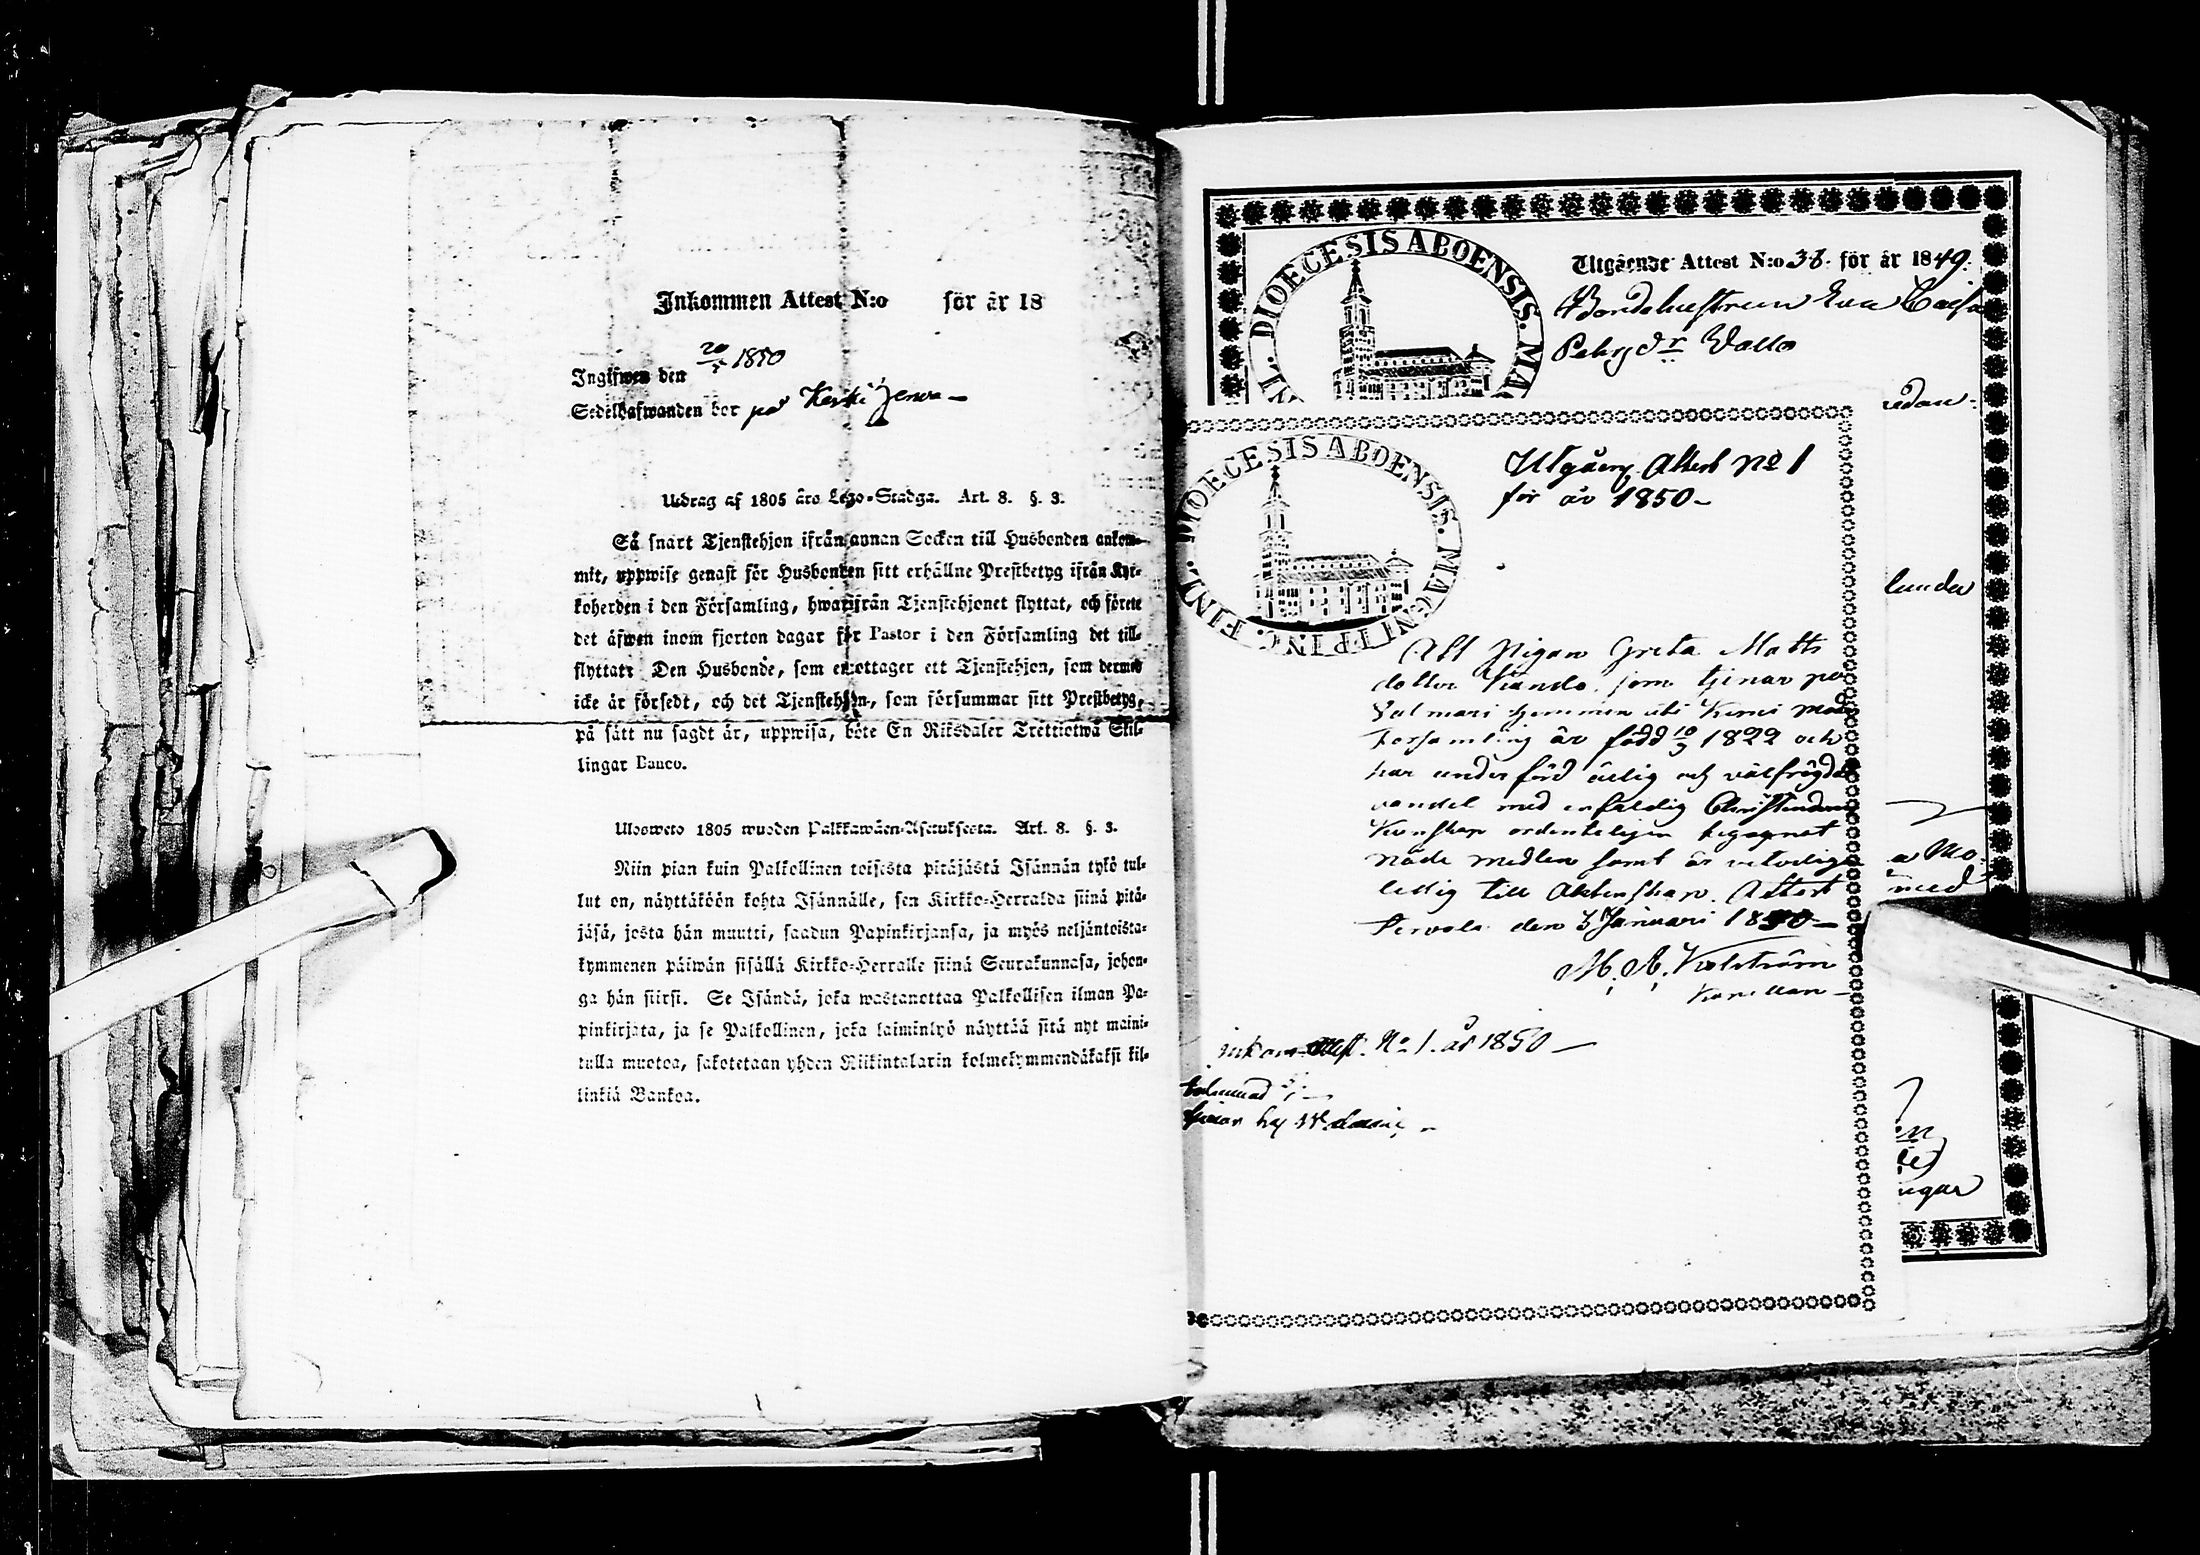 Inkommen Attest N:o för år 18
Ingifwen den 20/5 1850
Sedelhafwanden bor på Keski Jerva
Utdrag af 1805 års Lego-Stadga. Art. 8. §. 3.
Så snart Tjenstehjon ifrån annan Socken till Husbonden ankom-
mit, uppwise genast för Husbonden sitt erhållne Prestbetyg ifrån Kyr-
koherden i den Församling, hwarifrån Tjenstehjonet flyttat, och förete
det äfwen inom fjorton dagar för Pastor i den Församling det till-
flyttat: Den Husbonde, som emottager ett Tjenstehjon, som dermed
icke är försedt, och det Tjenstehjon, som försummar sitt Prestbetyg,
på sätt nu sagdt är, uppwisa, böte En Riksdaler Trettiotwå Skil-
lingar Banco.
Ulosweto 1805 wuoden Palkkawäen-Asetuksesta. Art. 8. §. 3.
Niin pian kuin Palkollinen toisesta pitäjästä Isännän tykö tul-
lut on, näyttäköön kohta Isännälle, sen Kirkko-Herralda siinä pitä-
jäsä, josta hän muutti, saadun Papinkirjansa, ja myös neljäntoista-
kymmenen päiwän sisällä Kirkko-Herralle siinä Seurakunnasa, johon-
ga hän siirsi. Se Isändä, joka wastanottaa Palkollisen ilman Pa-
pinkirjata, ja se Palkollinen, joka laiminlyö näyttää sitä nyt maini-
tulla muotoa, sakotetaan yhden Riikintalarin kolmekymmendäkaksi kil-
linkiä Bankoa.
DIOECESIS ABOENSIS. MA
Utgående Attest N:o 38. för år 1849.
Bondehustrun Eva Caisa
Pehrs dr Vallo
redan
lunda
a Mo-
med
ugar
DIOECESIS ABOENSIS. MAGNI PRINC. FINL.
Utgång. Attest No 1
för år 1850
Att Pigan Greta Matts
dotter som tjenar på
Valmari hemman uti Kemi
Församling är född 10/9 1822 och
har under förd ärlig och välfrägdad
vandel med enfaldig Christendoms
Kunskap ordenteligen begagnat
nåde medlen samt är veterligen
ledig till Äktenskap. Attest
Tervola den 3 Januari 1850
M. A.
inkom attest. No 1. år 1850